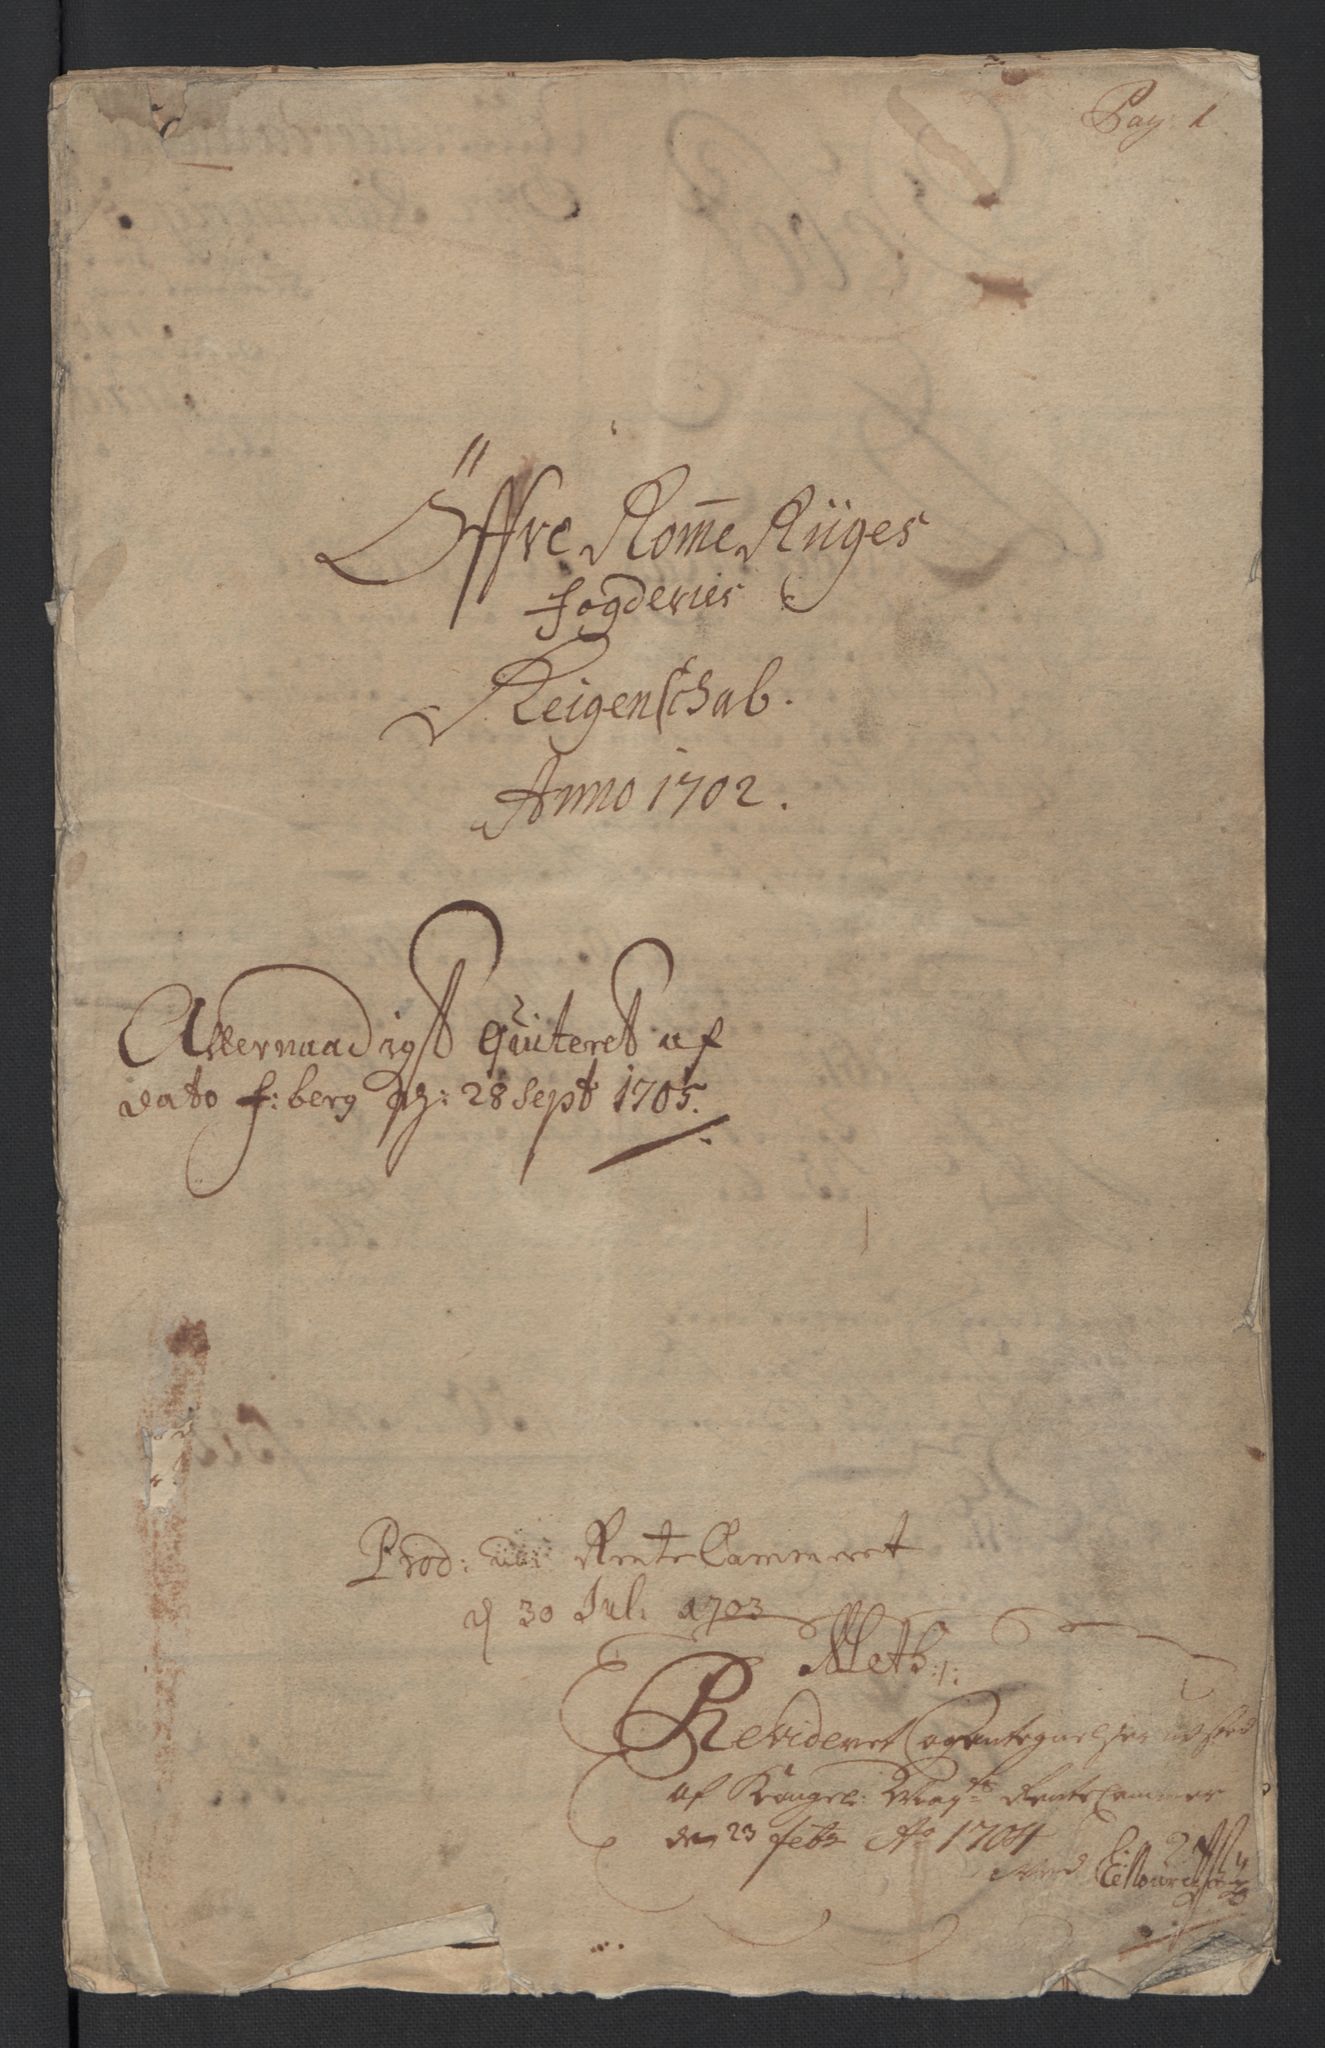 Pag: 1
Öffre Rom̄e Rüges
fogderies
Reigenschab.
Anno 1702.
Allernaadigst Quiteret af
dato f:berg d: 28 Sept 1705.
Prod: udi RenteCammeret
d 30 Jul: 1703
Meth:
Revideret og antegnelser udsted
af Kongel: May:ts RenteCammer
den 23 feb: Ao 1704